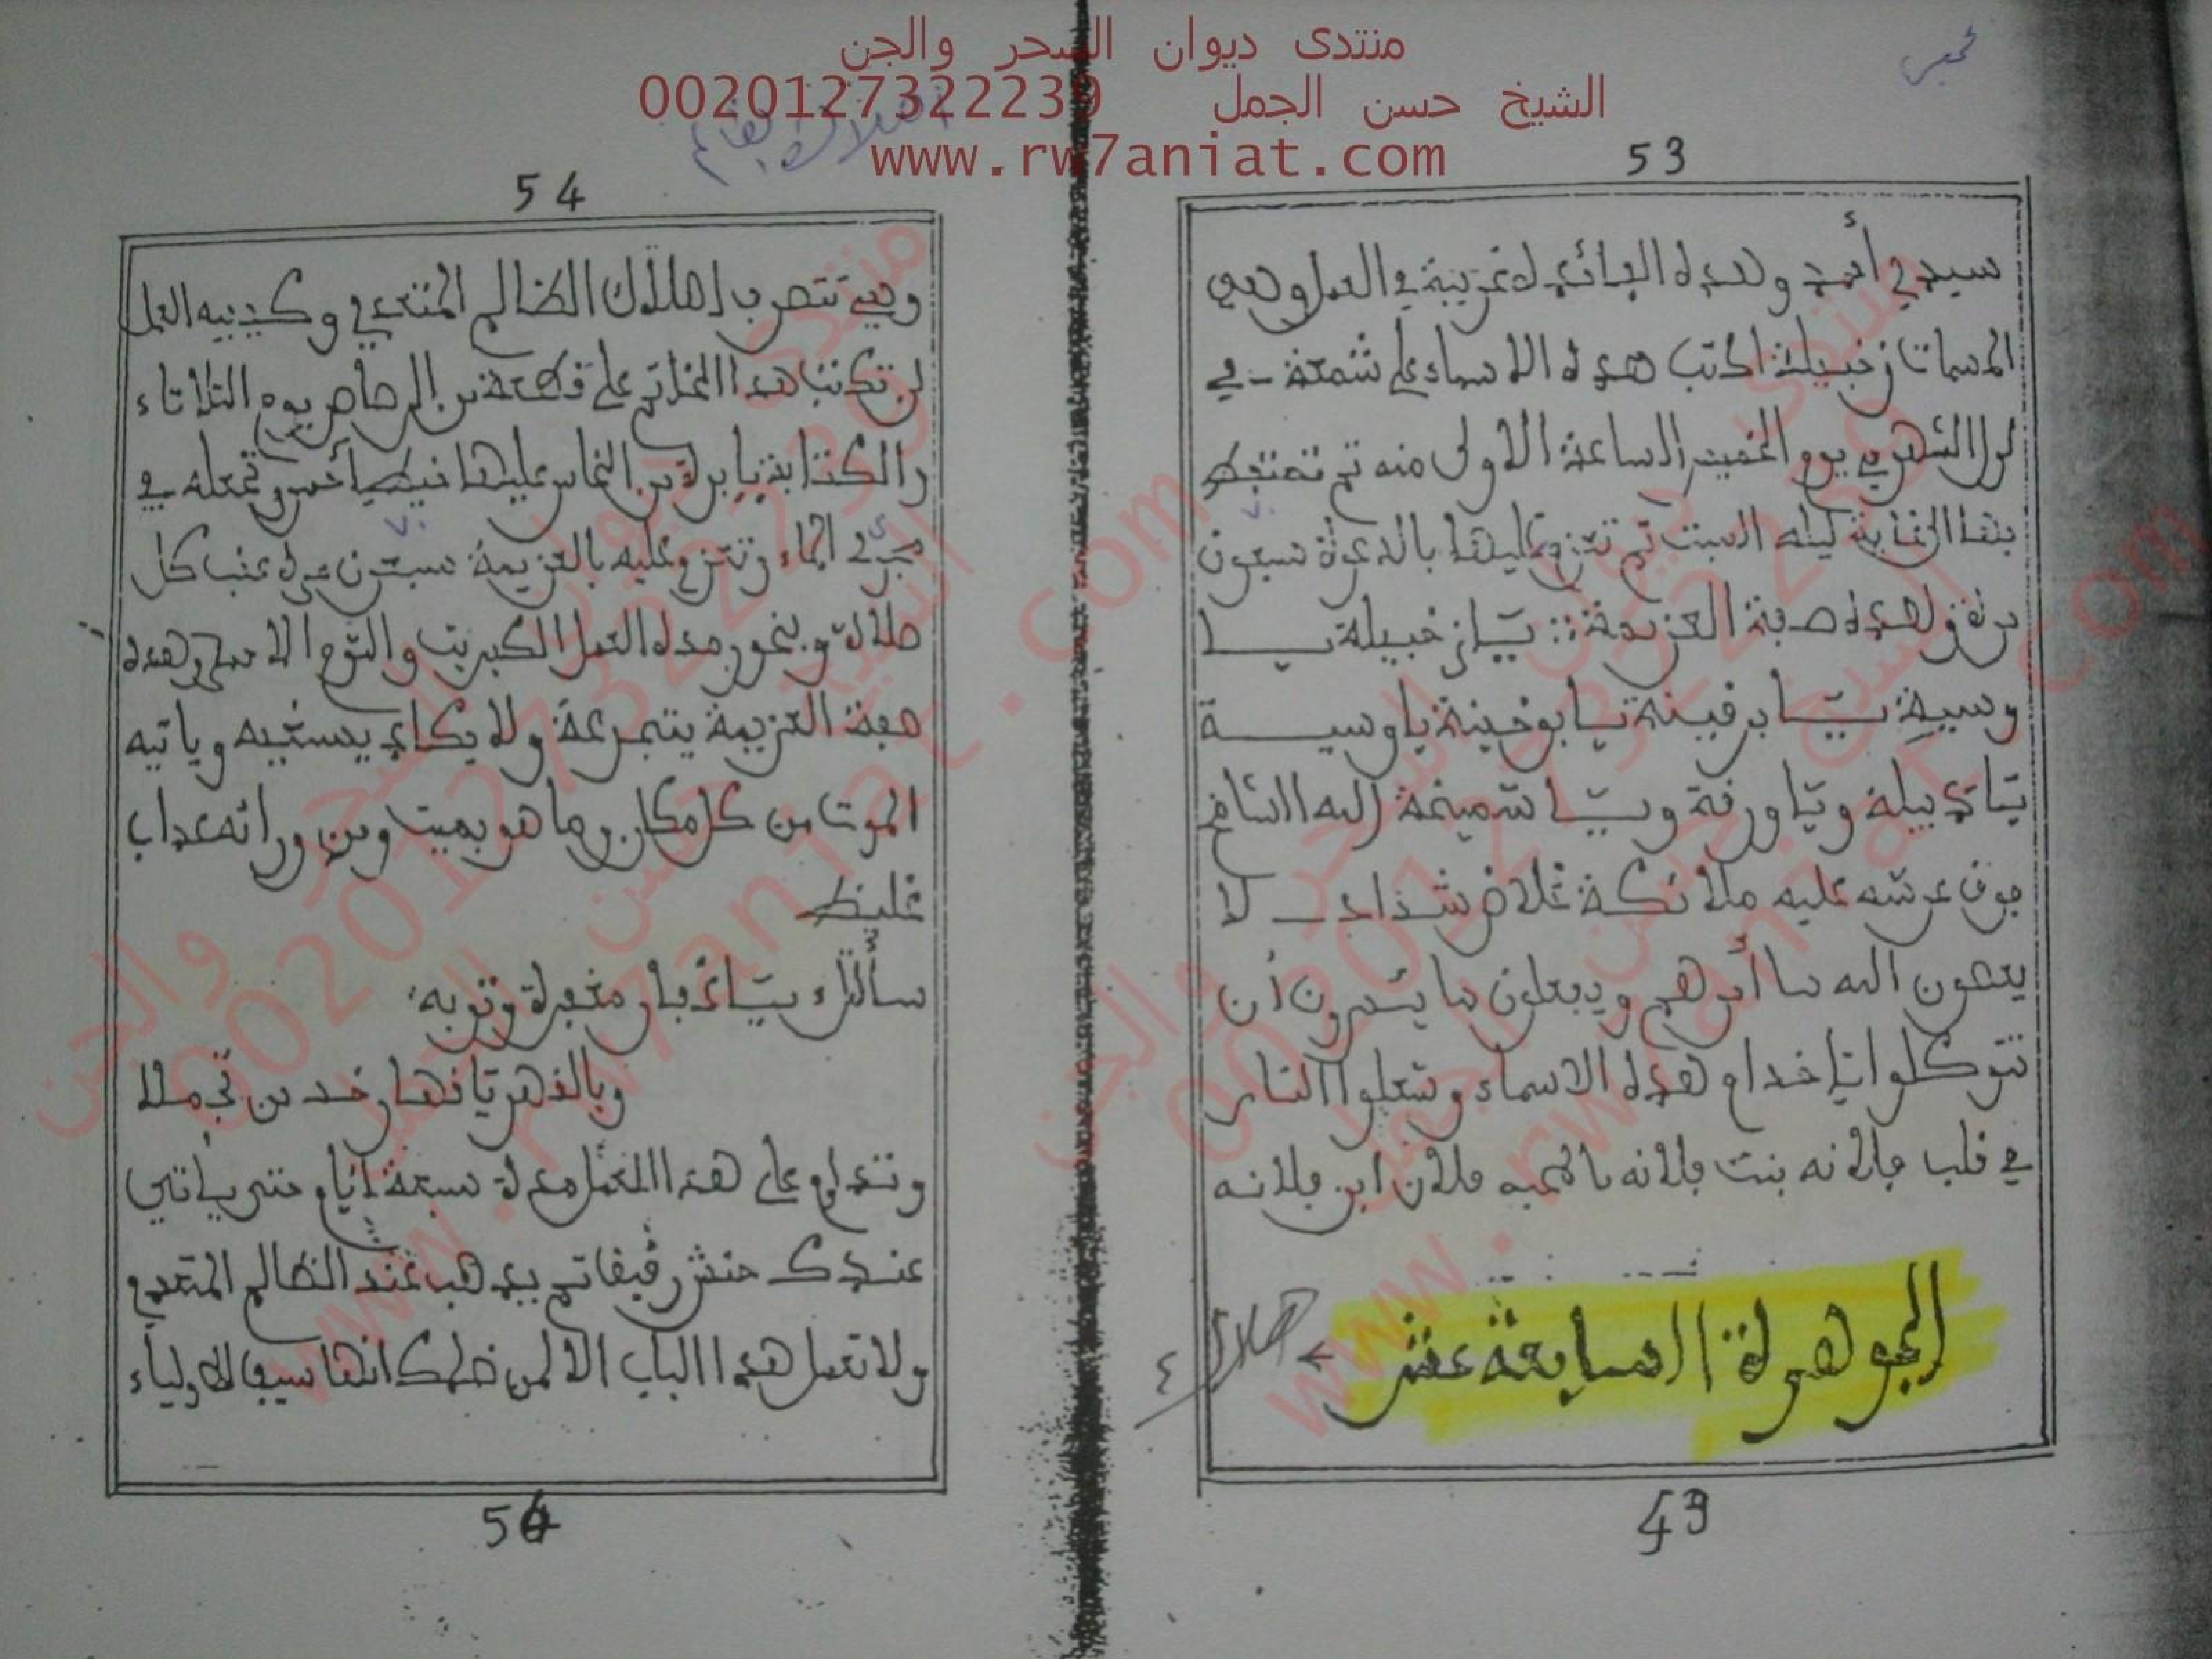 منتدى ديوان السحر والجن
الشيخ حسن الجمل 0020127322239
www.rw7aniat.com
53
سيدي أحمد وهده الفائدة غريبة في العمل وهي
المسمات زخبيلة اكتب هده الاسماء على شمعة في
الشهر في يوم الخميس الساعة الاولى منه تم تحتفظ
ليله السبت تم تعزم عليها بالدعوة سبعون
مرة وهده صفة العزيمة :: يا زخبيلة يا
وسية يا برفينة يا بوخينة يا وسية
يا دبيلة ويا ورنة ويا شميخة الله الشافي
فوق عرشه عليه ملائكة غلاض شداد لا
يعصون الله ما أمرهم ويفعلون ما يئمرون أن
تتوكلوا يا خدام هده الاسماء وتشعلوا النار
في قلب فلانه بنت فلانه بالمحبه فلان ابن فلانه
الجوهرة السابعة عشر
هلاك
٤
49
54
وهي تتصرف لهلاك الظالم المتعدي وكيفيه العمل
تكتب هدا الخاتم على قطعة من الرصاص يوم الثلاتاء
والكتابة بإبرة من النحاس عليها خيط أحمر وتجعله في
مجرى الماء وتعزم عليه بالعزيمة سبعون مرة عقب كل
صلاة وبخور هده العمل الكبريت والتوم الاحمر وهده
صفة العزيمة يتجرعه ولا يكاد يسغيه وياتيه
الموت من كل مكان وما هو بميت ومن ورائه عداب
غليظ
وتداوم على هدا العمل مدة سبعة أيام حتى ياتي
عندك حنش رقيق تم يدهب عند الظالم المتعدي
ولا تعمل هدا الباب الا لمن ظلمك انها سيف الاولياء